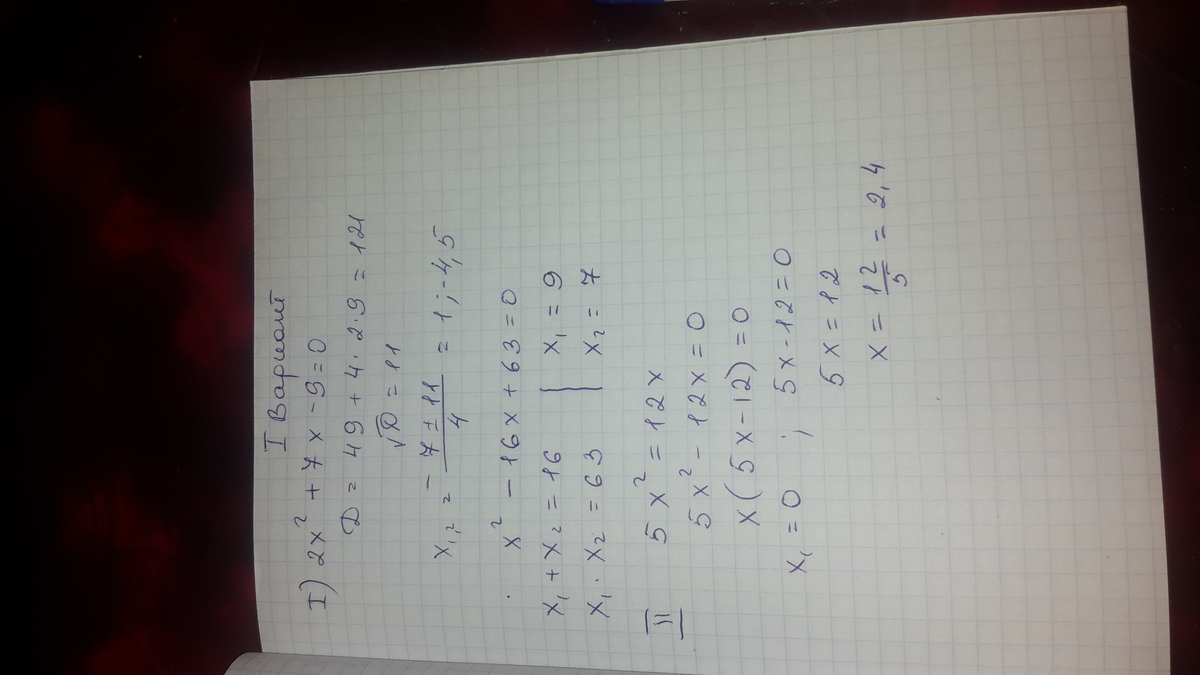 I Вариант
I) 2x² + 7x - 9 = 0
D = 49 + 4 · 2 · 9 = 121
√D = 11
x₁,₂ = (-7 ± 11)/4 = 1; -4,5
· x² - 16x + 63 = 0
x₁ + x₂ = 16 | x₁ = 9
x₁ · x₂ = 63 | x₂ = 7
II 5x² = 12x
5x² - 12x = 0
x(5x - 12) = 0
x₁ = 0 ; 5x - 12 = 0
5x = 12
x = 12/5 = 2,4